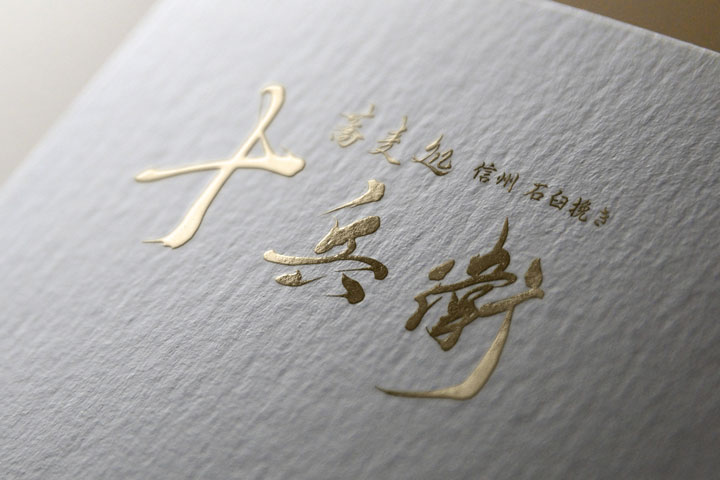 蕎麦処 信州 石臼挽き
十兵衛